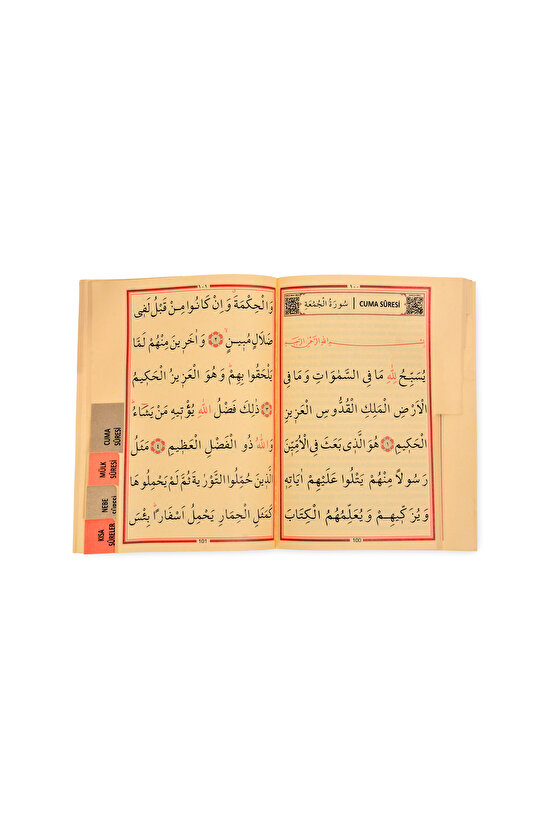 ١٠٠
CUMA SÛRESİ | سُورَةُ الْجُمُعَةِ
يُسَبِّحُ لِلّٰهِ مَا فِى السَّمٰوَاتِ وَمَا فِى
الْاَرْضِ الْمَلِكِ الْقُدُّوسِ الْعَزِيزِ
الْحَكِيمِ ﴿١﴾ هُوَ الَّذِى بَعَثَ فِى الْاُمِّيّ۪نَ
رَسُولًا مِنْهُمْ يَتْلُوا عَلَيْهِمْ اٰيَاتِه۪
وَيُزَكّ۪يهِمْ وَيُعَلِّمُهُمُ الْكِتَابَ
100
١٠١
وَالْحِكْمَةَ وَاِنْ كَانُوا مِنْ قَبْلُ لَفِى
ضَلَالٍ مُب۪ينٍۙ ﴿٢﴾ وَاٰخَر۪ينَ مِنْهُمْ لَمَّا
يَلْحَقُوا بِهِمْ وَهُوَ الْعَز۪يزُ الْحَك۪يمُ
﴿٣﴾ ذٰلِكَ فَضْلُ اللّٰهِ يُؤْت۪يهِ مَنْ يَشَاءُ
وَاللّٰهُ ذُو الْفَضْلِ الْعَظ۪يمِ ﴿٤﴾ مَثَلُ
الَّذ۪ينَ حُمِّلُوا التَّوْرٰيةَ ثُمَّ لَمْ يَحْمِلُوهَا
كَمَثَلِ الْحِمَارِ يَحْمِلُ اَسْفَارًا بِئْسَ
101
CUMA
SÛRESİ
MÜLK
SÛRESİ
NEBE
KISA
SÛRELER